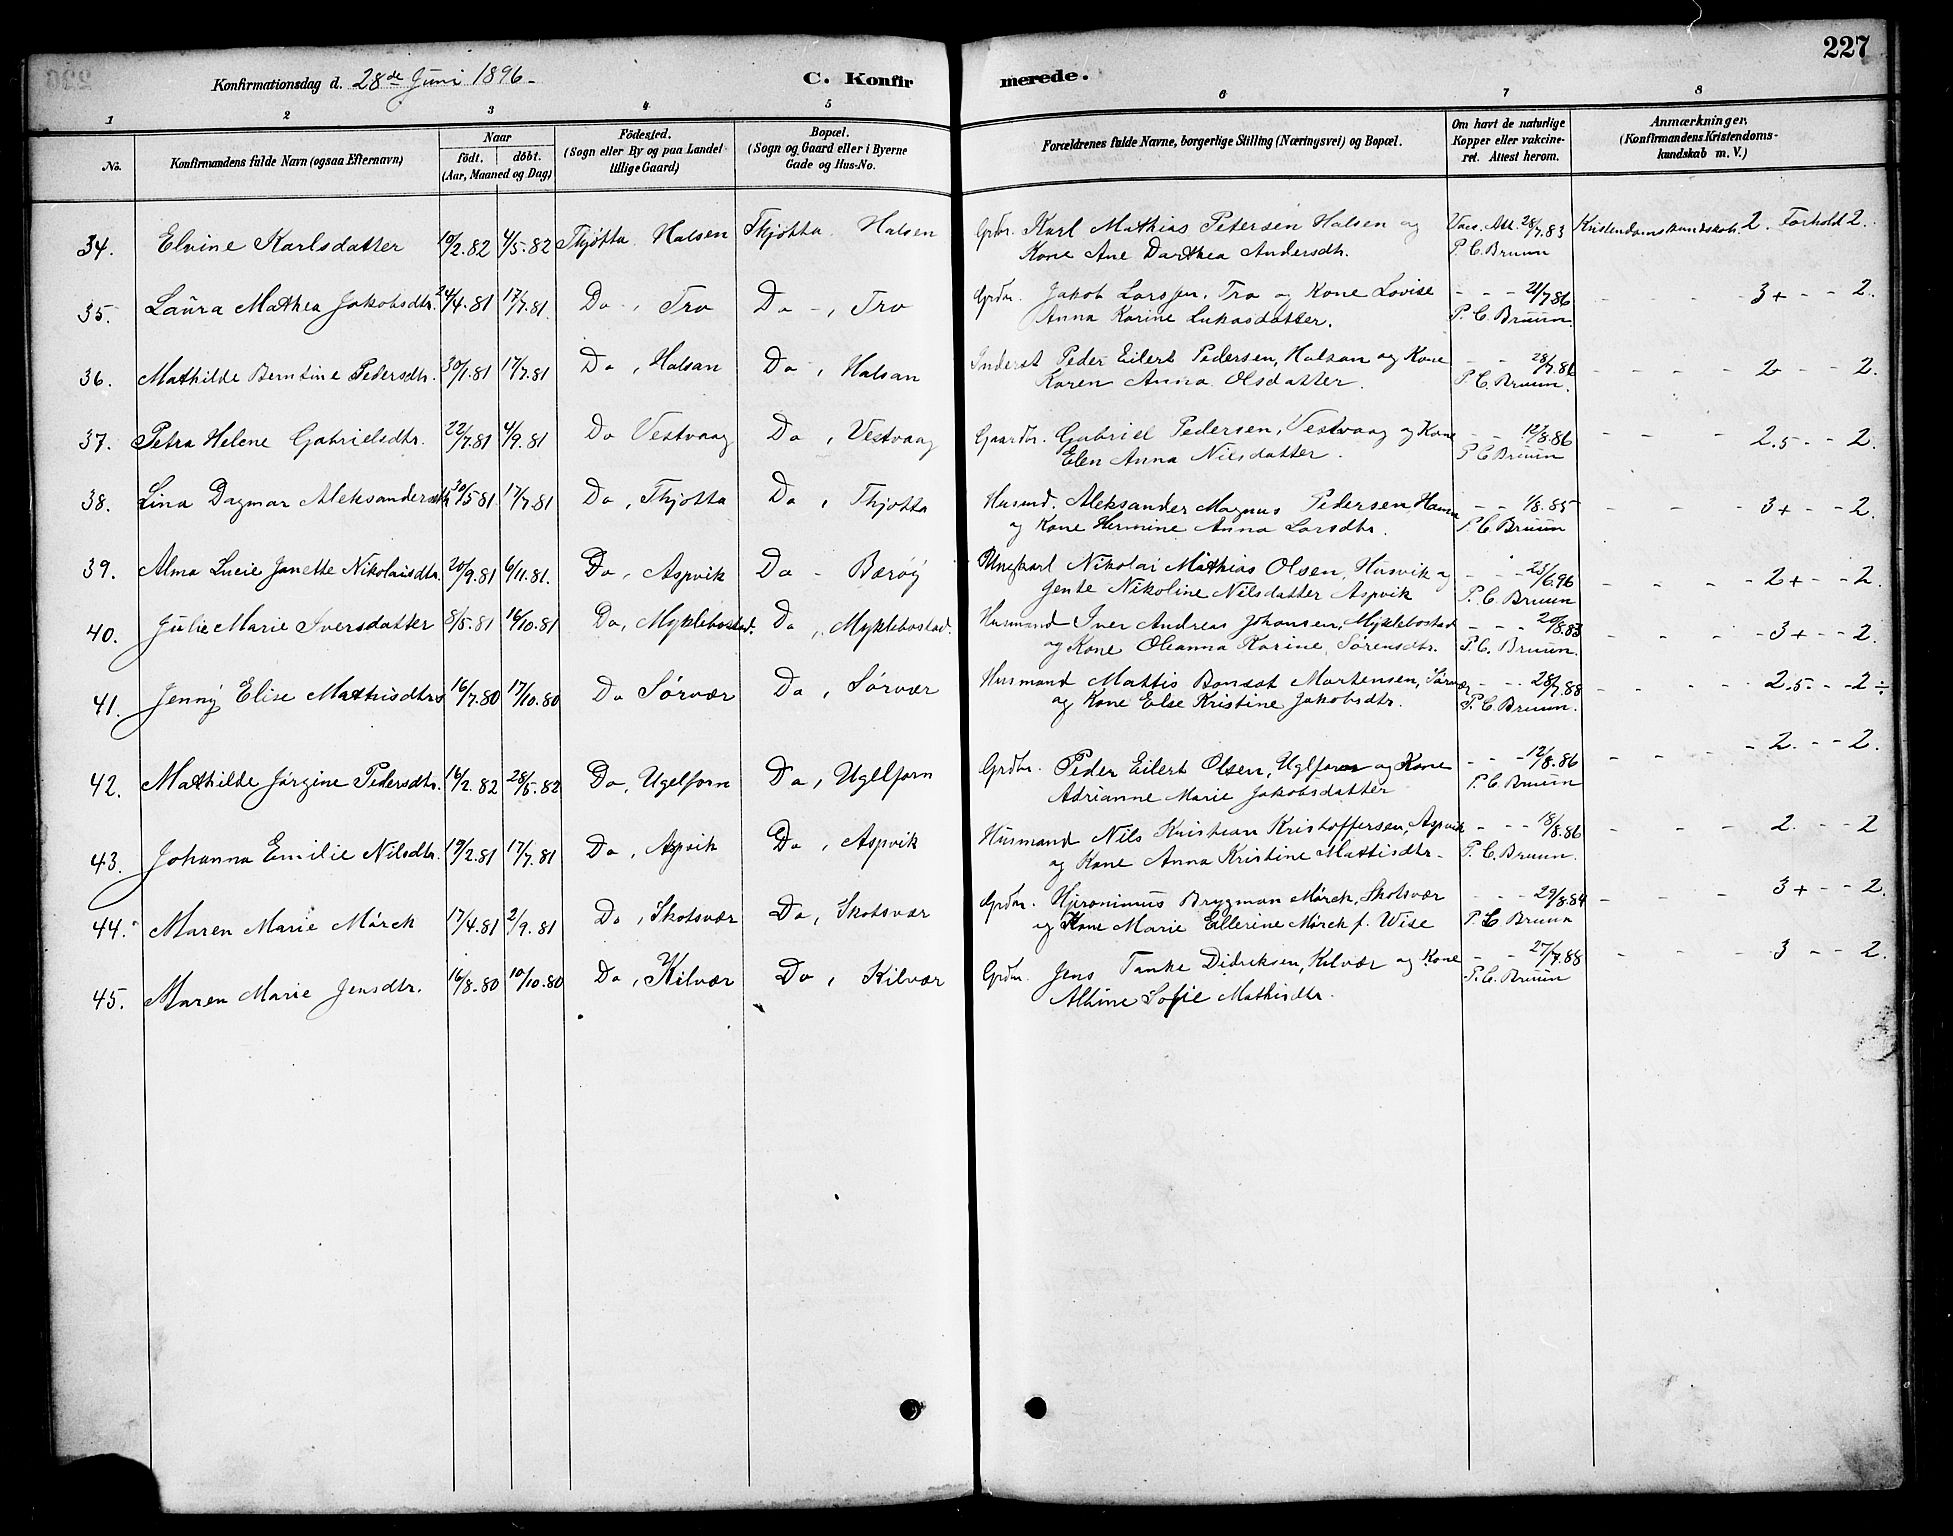 227
Konfirmationsdag d. 28de Juni 1896.
C. Konfirmerede.
1 2 3 4 5 6 7 8
No.
Konfirmandens fulde Navn (ogsaa Efternavn)
Naar
födt. döbt.
(Aar, Maaned og Dag)
Födested.
(Sogn eller By og paa Landet tillige Gaard)
Bopæl.
(Sogn og Gaard eller i Byerne Gade og Hus-No.
Forældrenes fulde Navne, borgerlige Stilling (Næringsvei) og Bopæl.
Om havt de naturlige Kopper eller vakcineret. Attest herom.
Anmærkninger.
(Konfirmandens Kristendomskundskab m. V.)
34. Elvine Karlsdatter 19/2.82 4/5.82 Thjøtta. Halsen Thjøtta. Halsen Grdbr. Karl Mathias Petersen Halsen og Vac. Att. 28/7.83 Kristendomskundskab. 2. Forhold 2.
Kone Ane Darthea Andersdtr. P. C. Bruun
35. Laura Mathea Jakobsdtr. 24/4.81 17/7.81. Do -, Tro Do -, Tro Grdbr. Jakob Larssen, Tro og Kone Lovise - - - 21/7.86 - - - 3+ - - 2.
Anna Karine Lukasdatter. P. C. Bruun.
36. Mathilde Berntine Pedersdtr. 30/1.81 17/7.81 Do, Halsan Do -, Halsan Inderst Peder Eilert Pedersen, Halsan og Kone - - 28/7.86 - - - - 2 - - 2.
Karen Anna Olsdatter. P. C. Bruun.
37. Petra Helene Gabrielsdtr. 22/7.81 4/9.81 Do Vestvaag Do, Vestvaag Gaardbr. Gabriel Pedersen, Vestvaag og Kone - - 12/8.86 - - - 2.5 - - 2.
Elen Anna Nilsdatter. P C Bruun
38. Lina Dagmar Aleksandersdtr. 30/5.81 17/7.81 Do, Thjøtta Do, Thjøtta Husmd. Aleksander Magnus Pedersen, - - 1/8.85 - - - 3+ - - 2.
og Kone Hermine Anna Larsdtr. P. C. Bruun
39. Alma Lucie Janette Nikolaisdtr. 20/9.81 6/11.81. Do, Aspvik Do - Bærøy Ungkarl Nikolai Mathias Olsen, Husvik og - - - 23/6.96 - - - - 2+ - - 2.
Jente Nikoline Nilsdatter Aspvik P. C. Bruun
40. Julie Marie Iversdatter 8/5.81 16/10.81 Do, Myklebostad. Do., Myklebostad. Husmand Iver Andreas Johansen, Myklebostad - - - 20/8.83 - - - - 3+ - - 2.
og Kone Oleanna Karine Sørensdtr. P. C. Bruun.
41. Jenny Elise Mathisdtr 16/7.80 17/10.80 Do Sørvær Do, Sørvær Husmand Mattis Bonsat Martensen, Sørvær - - - 28/7.88 - - - - 2.5 - - 2÷
og Kone Else Kristine Jakobsdtr. P. C. Bruun.
42. Mathilde Jørgine Pedersdtr. 16/2.82 28/5.82 Do, Ugelforn Do, Uglforn Grdbr. Peder Eilert Olsen, Uglforn og Kone - - - 12/8.86 - - - - 2. - - 2.
Adrianne Marie Jakobsdatter P. C. Bruun
43. Johanna Emilie Nilsdtr. 19/2.81 17/7.81 Do, Aspvik Do, Aspvik Husmand Nils Kristian Kristoffersen, Aspvik - - - 18/8.86 - - - 2. - - 2
og Kone Anna Kristine Mattisdtr. P. C. Bruun.
44. Maren Marie Mörch 17/4.81 2/9.81 Do, Skotsvær Do, Skotsvær Grdbr. Hjeronimus Brygman Mörch, Skotsvær - - - 29/8.84 - - - 3+ - - 2.
og Kone Marie Ellerine Mörch f. Wise P. C Bruun
45. Maren Marie Jensdtr. 16/8.80 10/10.80 Do, Kilvær Do, Kilvær Grdbr. Jens Tanke Didriksen, Kilvær og Kone - - 27/7.88 - - - 3 - - 2.
Albine Sofie Mathisdtr. P. C. Bruun